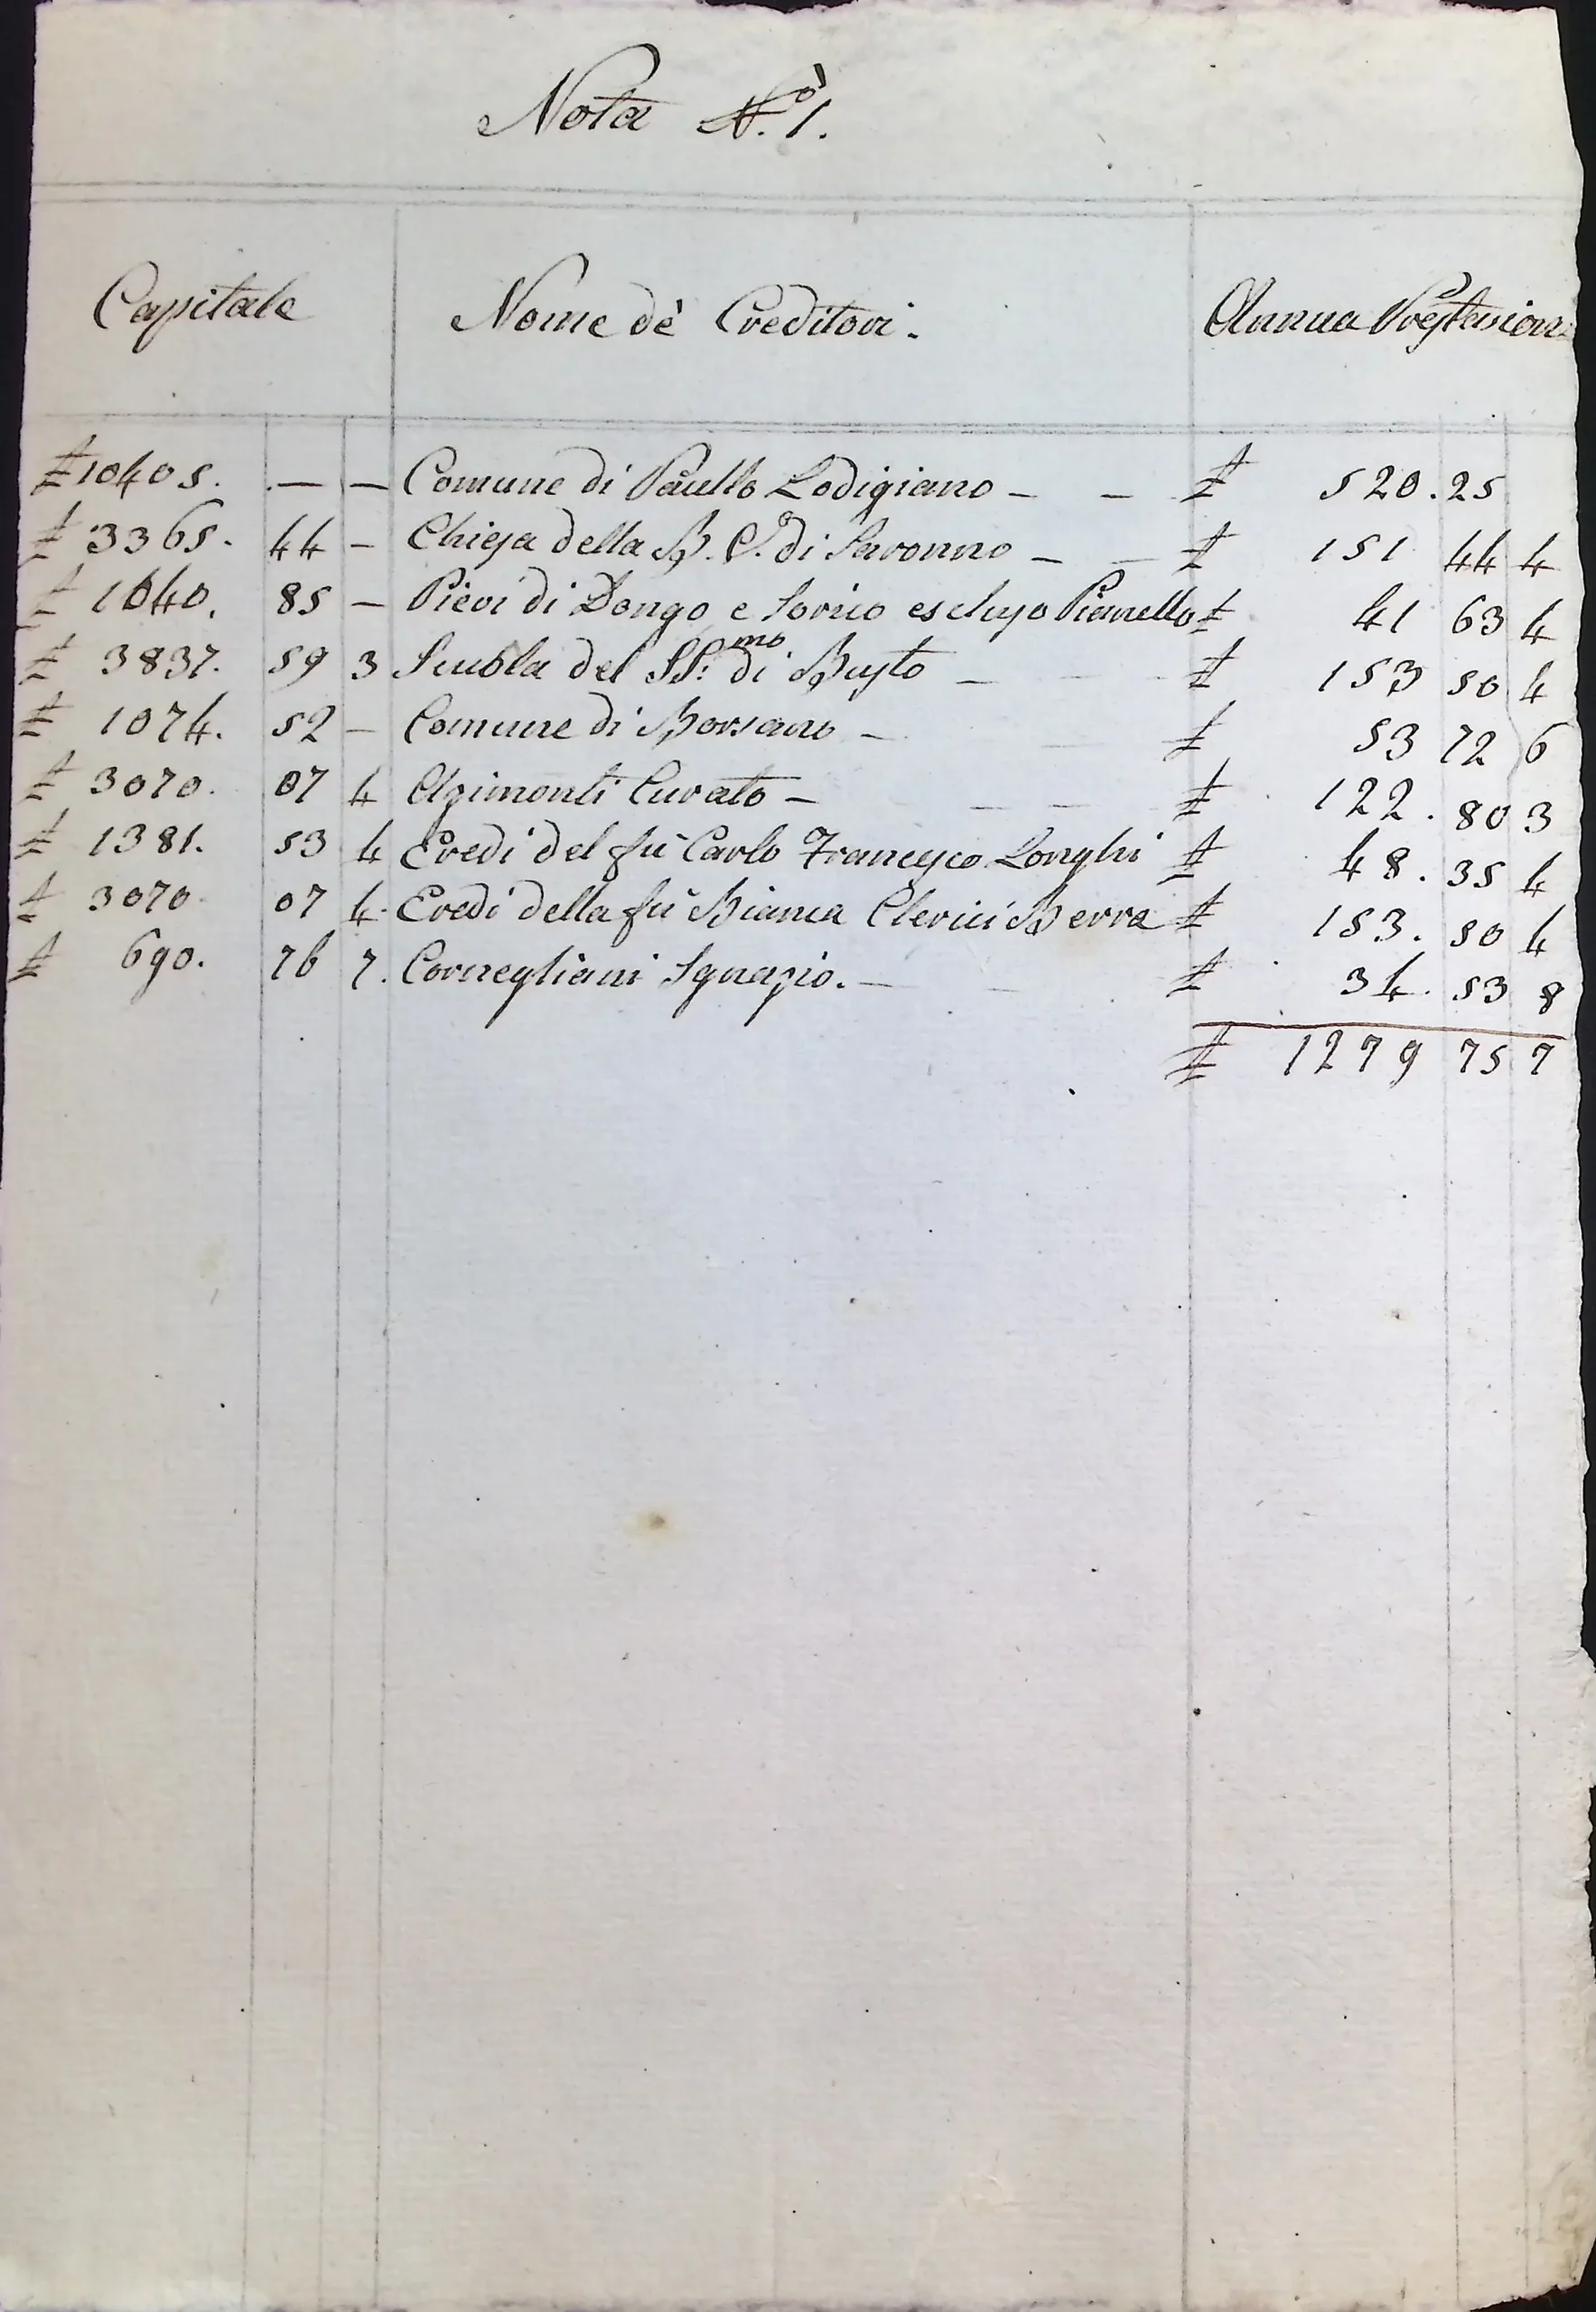 Nota N.º 1.
Capitale Nome de' Creditori. Annua Prestazione
£ 10405. — — Comune di Paullo Lodigiano — — £ 520.25
£ 3365. 44 — Chiesa della B. V. di Saronno — — £ 151 44 4
£ 1040. 85 — Pievi di Dongo e Sorico escluso Pianello £ 41 63 4
£ 3837. 59 3 Scuola del SS.mo di Busto — £ 153 50 4
£ 1074. 52 — Comune di Borsano — £ 53 72 6
£ 3070. 07 4 Azimonti Curato — — — £ 122. 80 3
£ 1381. 53 4 Eredi del fù Carlo Francesco Longhi £ 48. 35 4
£ 3070. 07 4. Eredi della fù Bianca Clerici Berra £ 153. 50 4
£ 690. 76 7. Cornegliani Ignazio. — £ 34. 53 8
£ 1279 75 7